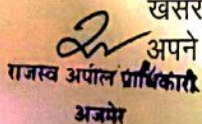 खसर
अपने
राजस्व अपील प्राधिकारी
अजमेर